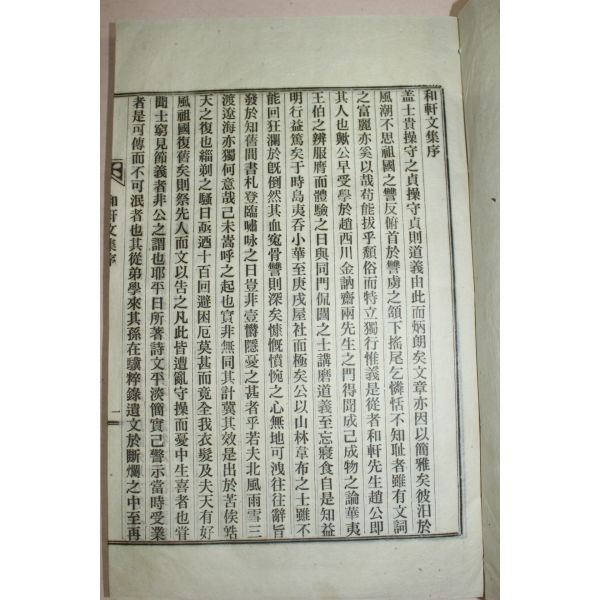 和軒文集序
盖士貴操守之貞操守貞則道義由此而炳朗矣文章亦因以簡雅矣彼汨於
風潮不思祖國之讐反俯首於讐虜之頷下搖尾乞憐恬不知耻者雖有文詞
之富麗亦奚以哉苟能拔乎頹俗而特立獨行惟義是從者和軒先生趙公即
其人也歟公早受學於趙西川金訥齋兩先生之門得聞成己成物之論華夷
王伯之辨服膺而體驗之日與同門侃誾之士講磨道義至忘寢食自是知益
明行益篤矣于時島夷呑小華至庚戌屋社而極矣公以山林韋布之士雖不
能回狂瀾於旣倒然其血寃骨讐則深矣慷慨憤惋之心無地可洩往往辭旨
發於知舊間書札登臨嘯咏之日豈非壹欝隱憂之甚者乎若夫北風雨雪三
渡遼海亦獨何意哉己未嵩呼之起也實非無同其計冀其效是出於苦俟皓
天之復也緇剃之騷日亟迺十百回避困厄莫甚而竟全我衣髮及夫天有好
風祖國復舊矣則祭先人而文以告之凡此皆遭亂守操而憂中生喜者也甞
聞士窮見節義者非公之謂也耶平日所著詩文平淡簡實己警示當時受業
者是可傳而不可泯者也其從弟學來其孫在驥粹錄遺文於斷爛之中至再
和軒文集序
一